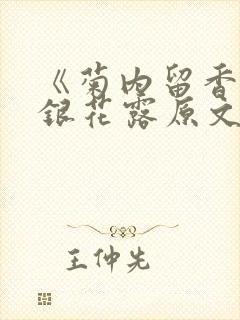 《菊内留香
银花露原文
王仲先